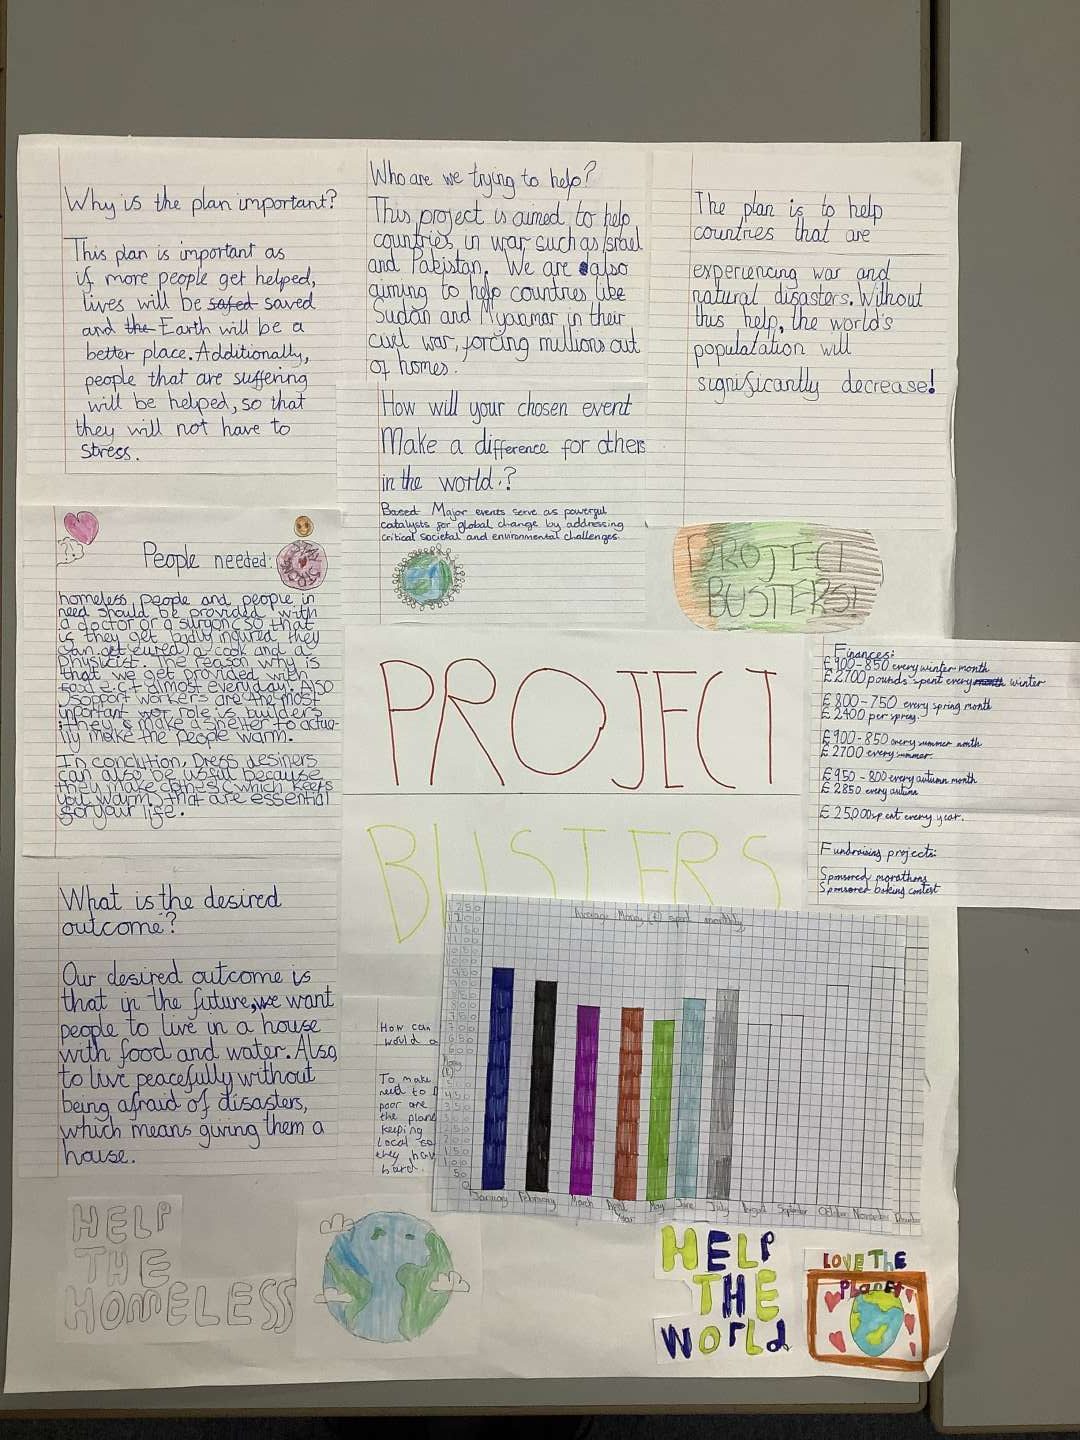 Why is the plan important?
This plan is important as
if more people get helped,
lives will be safed saved
and the Earth will be a
better place. Additionally,
people that are suffering
will be helped, so that
they will not have to
stress.
Who are we trying to help?
This project is aimed to help
countries in war such as Israel
and Pakistan. We are also
aiming to help countries like
Sudan and Myanmar in their
civil war, forcing millions out
of homes.
The plan is to help
countries that are
experiencing war and
natural disasters. Without
this help, the world's
populatation will
significantly decrease!
How will your chosen event
Make a difference for others
in the world.?
Based Major events serve as powerful
catalysts for global change by addressing
critical societal and environmental challenges.
PROJECT
BUSTERS!
People needed:
homeless people and people in
need should be provided with
a doctor or a surgon, so that
is they get badly injured they
can get cured, a cook and a
physicist. The reason why is
that we get provided with
food e.c.t almost everyday. Also
support workers are the most
important role is builders
they make a shelter to actua-
lly make the people warm.
In conclution, Dress desiners
can also be useful because
they make clothes, which keeps
you warm, that are essential
for your life.
PROJECT
BUSTERS
Finances:
£900-850 every winter month
£2700 pounds spent every month winter
£800-750 every spring month
£2400 per spring
£900-850 every summer month
£2700 every summer
£950-800 every autumn month
£2850 every autumn
£25,000 spent every year.
Fundraising projects:
Sponsored marathons
Sponsored baking contest
What is the desired
outcome?
Our desired outcome is
that in the future, we want
people to live in a house
with food and water. Also,
to live peacefully without
being afraid of disasters,
which means giving them a
house.
How can
would a
To make
need to
poor are
the plan
keeping
Local co
they hav
Average Money (£) spent monthly
1250
1200
1150
1100
1050
1000
950
900
850
800
750
700
650
600
Money
(£)
450
400
350
300
250
200
150
100
50
0
January February March April May June July August September October November December
Year
HELP
THE
HOMELESS
HELP
THE
WOrLd
LOVE THE
PlanEt